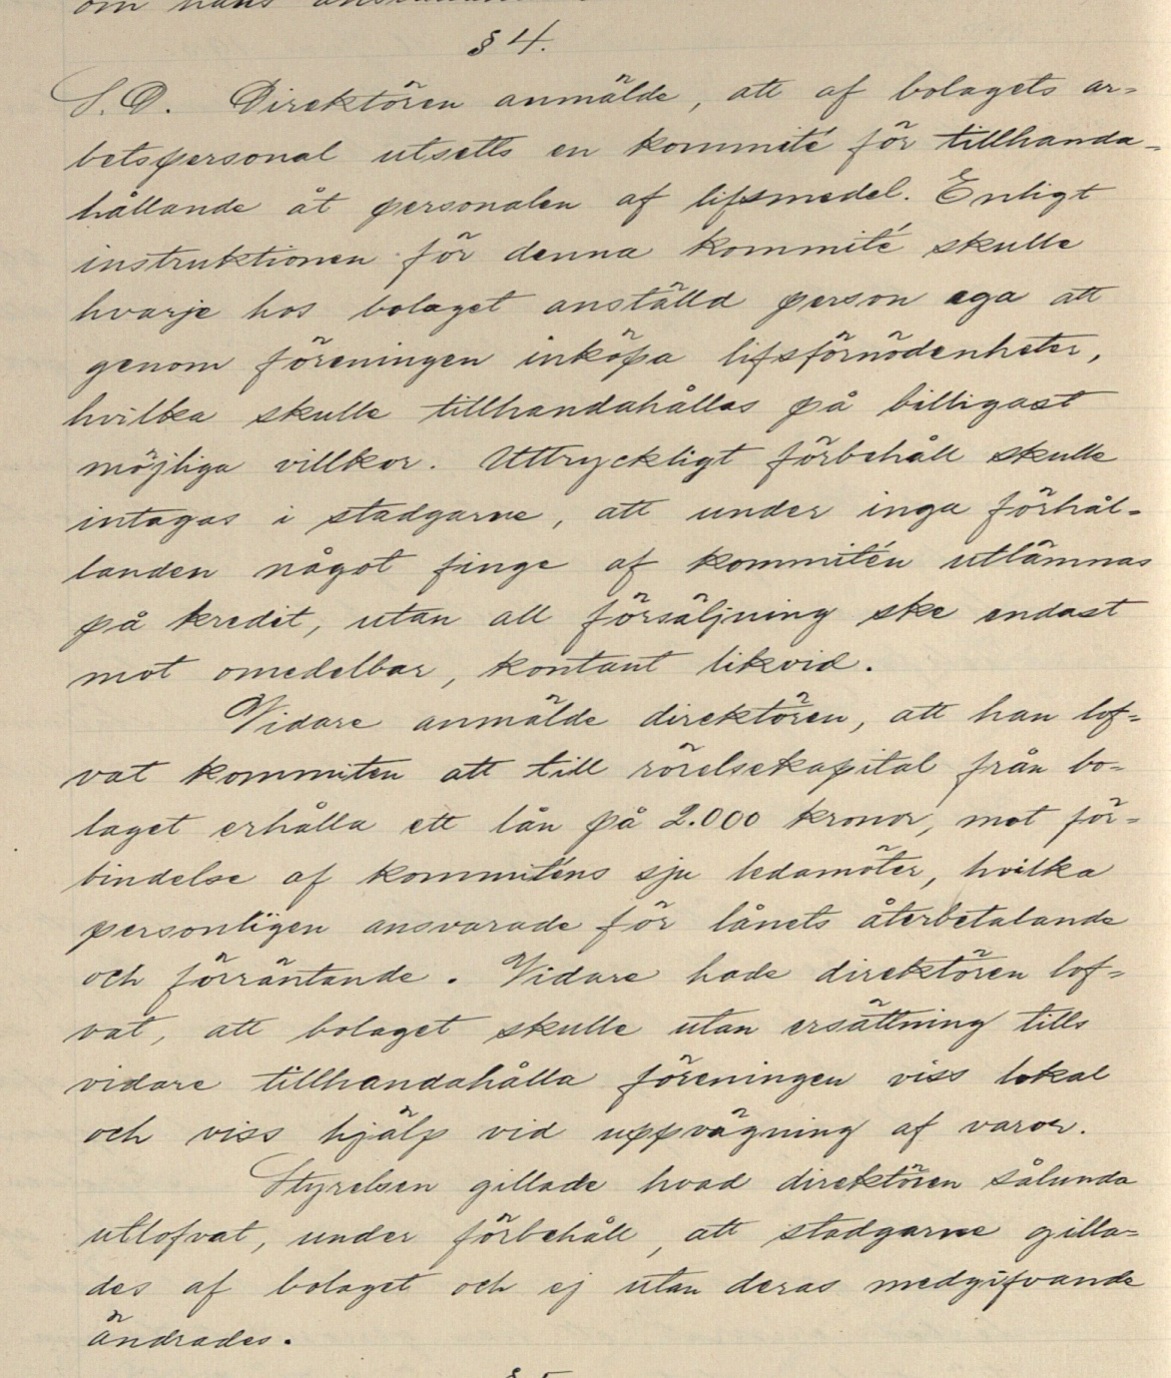 om hans
§ 4.
S. D. Direktören anmälde, att af bolagets ar-
betspersonal utsetts en kommité för tillhanda-
hållande åt personalen af lifsmedel. Enligt
instruktionen för denna kommité skulle
hvarje hos bolaget anställd person ega att
genom föreningen inköpa lifsförnödenheter,
hvilka skulle tillhandahållas på billigast
möjliga villkor. Uttryckligt förbehåll skulle
intagas i stadgarne, att under inga förhål-
landen något finge af kommitén utlämnas
på kredit, utan all försäljning ske endast
mot omedelbar, kontant likvid.
Vidare anmälde direktören, att han lof-
vat kommiten att till rörelsekapital från bo-
laget erhålla ett lån på 2.000 kronor, mot för-
bindelse af kommiténs sju ledamöter, hvilka
personligen ansvarade för lånets återbetalande
och förräntande. Vidare hade direktören lof-
vat, att bolaget skulle utan ersättning tills
vidare tillhandahålla föreningen viss lokal
och viss hjälp vid uppvägning af varor.
Styrelsen gillade hvad direktören sålunda
utlofvat, under förbehåll, att stadgarne gilla-
des af bolaget och ej utan deras medgifvande
ändrades.